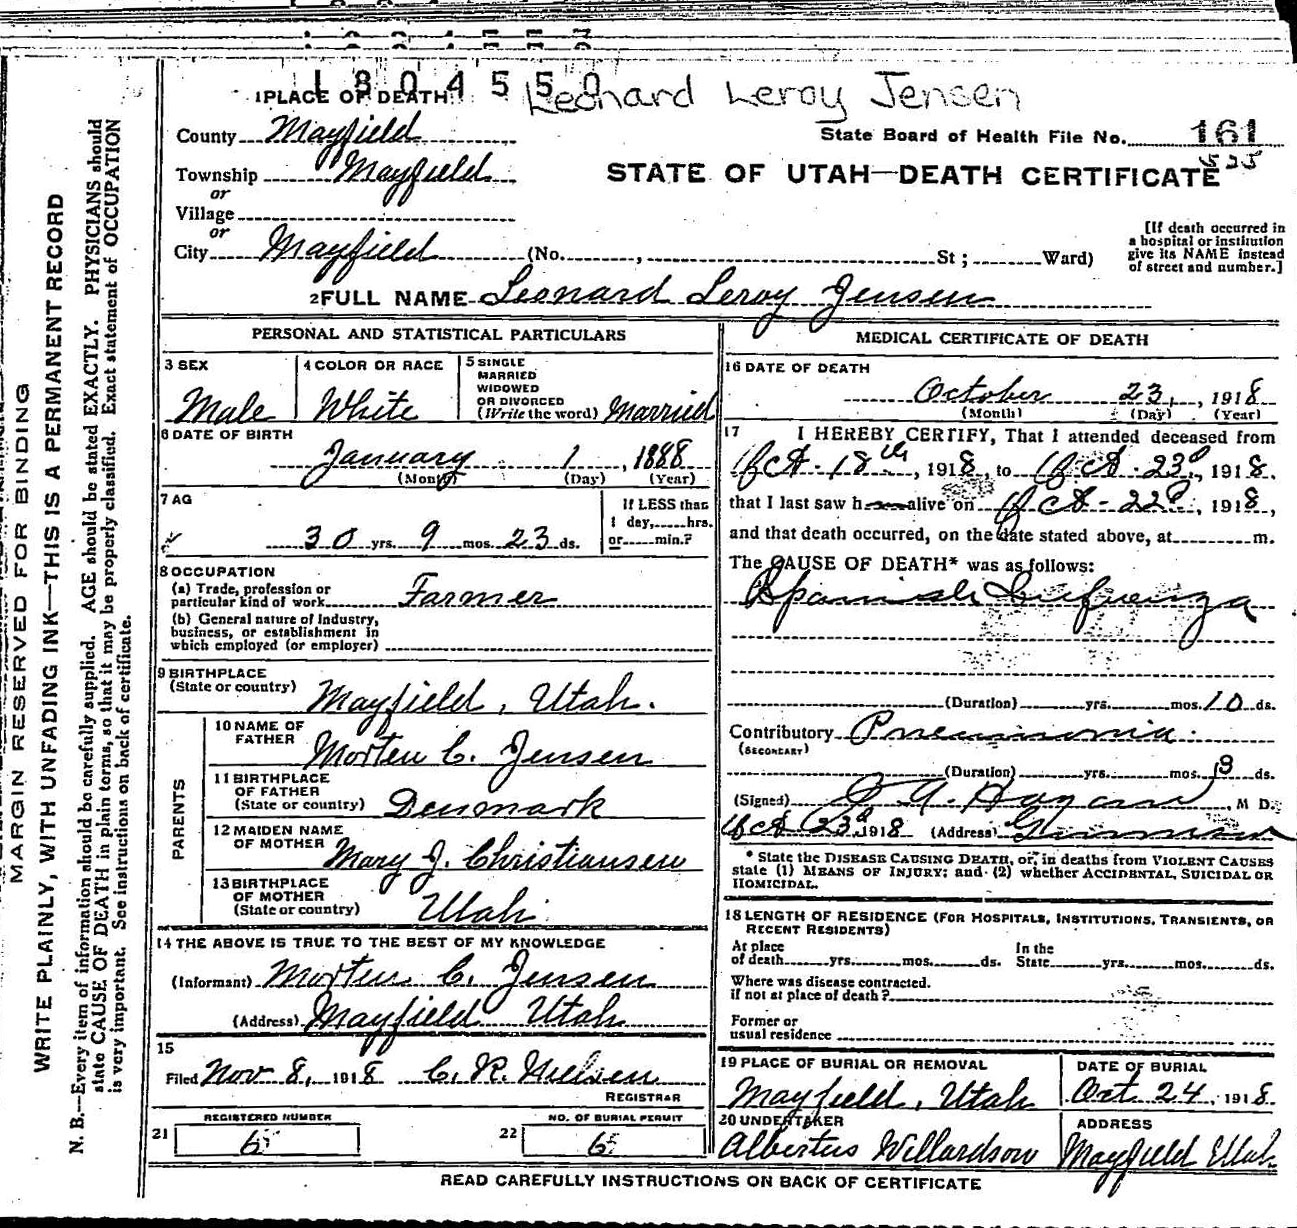 180455
1 PLACE OF DEATH Leonard Leroy Jensen
County Mayfield State Board of Health File No. 161
525
Township Mayfield STATE OF UTAH—DEATH CERTIFICATE
or
Village
or
City Mayfield (No. , St ; Ward)
[If death occurred in a hospital or institution give its NAME instead of street and number.]
2 FULL NAME Leonard Leroy Jensen
PERSONAL AND STATISTICAL PARTICULARS
3 SEX
Male
4 COLOR OR RACE
White
5 SINGLE
MARRIED
WIDOWED
OR DIVORCED
(Write the word) Married
6 DATE OF BIRTH
January 1, 1888
(Month) (Day) (Year)
7 AG
30 yrs. 9 mos. 23 ds.
If LESS than
1 day, hrs.
or min.?
8 OCCUPATION
(a) Trade, profession or
particular kind of work Farmer
(b) General nature of Industry,
business, or establishment in
which employed (or employer)
9 BIRTHPLACE
(State or country) Mayfield, Utah.
PARENTS
10 NAME OF
FATHER Morten C. Jensen
11 BIRTHPLACE
OF FATHER
(State or country) Denmark
12 MAIDEN NAME
OF MOTHER Mary J. Christiansen
13 BIRTHPLACE
OF MOTHER
(State or country) Utah
14 THE ABOVE IS TRUE TO THE BEST OF MY KNOWLEDGE
(Informant) Morten C. Jensen
(Address) Mayfield Utah
15
Filed Nov 8, 1918 C. R. Nielsen
REGISTRAR
REGISTERED NUMBER
21 65
NO. OF BURIAL PERMIT
22 65
MEDICAL CERTIFICATE OF DEATH
16 DATE OF DEATH
October 23, 1918
(Month) (Day) (Year)
17 I HEREBY CERTIFY, That I attended deceased from
Oct. 18th, 1918, to Oct. 23d, 1918.
that I last saw h alive on Oct - 22d, 1918,
and that death occurred, on the date stated above, at m.
The CAUSE OF DEATH* was as follows:
Spanish Influenza
(Duration) yrs. mos. 10 ds.
Contributory Pneumonia.
(SECONDARY)
(Duration) yrs. mos. ds.
(Signed) M D.
Oct 23d 1918 (Address) Gunnison
* State the DISEASE CAUSING DEATH, or, in deaths from VIOLENT CAUSES
state (1) MEANS OF INJURY; and (2) whether ACCIDENTAL, SUICIDAL OR
HOMICIDAL.
18 LENGTH OF RESIDENCE (FOR HOSPITALS, INSTITUTIONS, TRANSIENTS, OR
RECENT RESIDENTS)
At place In the
of death yrs. mos. ds. State yrs. mos. ds.
Where was disease contracted.
if not at place of death?
Former or
usual residence
19 PLACE OF BURIAL OR REMOVAL
Mayfield, Utah
DATE OF BURIAL
Oct. 24, 1918.
20 UNDERTAKER
Albertus Willardson
ADDRESS
Mayfield Utah
READ CAREFULLY INSTRUCTIONS ON BACK OF CERTIFICATE
MARGIN RESERVED FOR BINDING
WRITE PLAINLY, WITH UNFADING INK—THIS IS A PERMANENT RECORD
N. B.—Every item of information should be carefully supplied. AGE should be stated EXACTLY. PHYSICIANS should
state CAUSE OF DEATH in plain terms, so that it may be properly classified. Exact statement of OCCUPATION
is very important. See instructions on back of certificate.